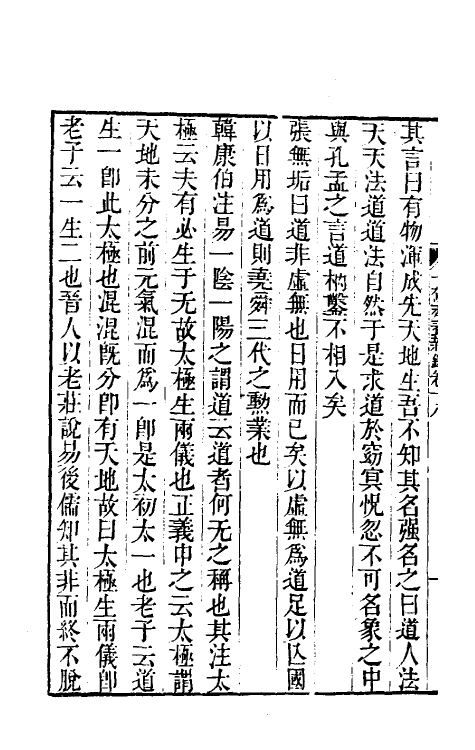 其言曰有物渾成先天地生吾不知其名强名之曰道人法
天天法道道法自然于是求道於窈冥怳忽不可名象之中
與孔孟之言道枘鑿不相入矣
張無垢曰道非虛無也日用而已矣以虛無爲道足以亾國
以日用爲道則堯舜三代之勳業也
韓康伯注易一陰一陽之謂道云道者何无之稱也其注太
極云夫有必生于无故太極生兩儀也正義申之云太極謂
天地未分之前元氣混而爲一卽是太初太一也老子云道
生一卽此太極也混混旣分卽有天地故曰太極生兩儀卽
老子云一生二也晉人以老莊說易後儒知其非而終不脫